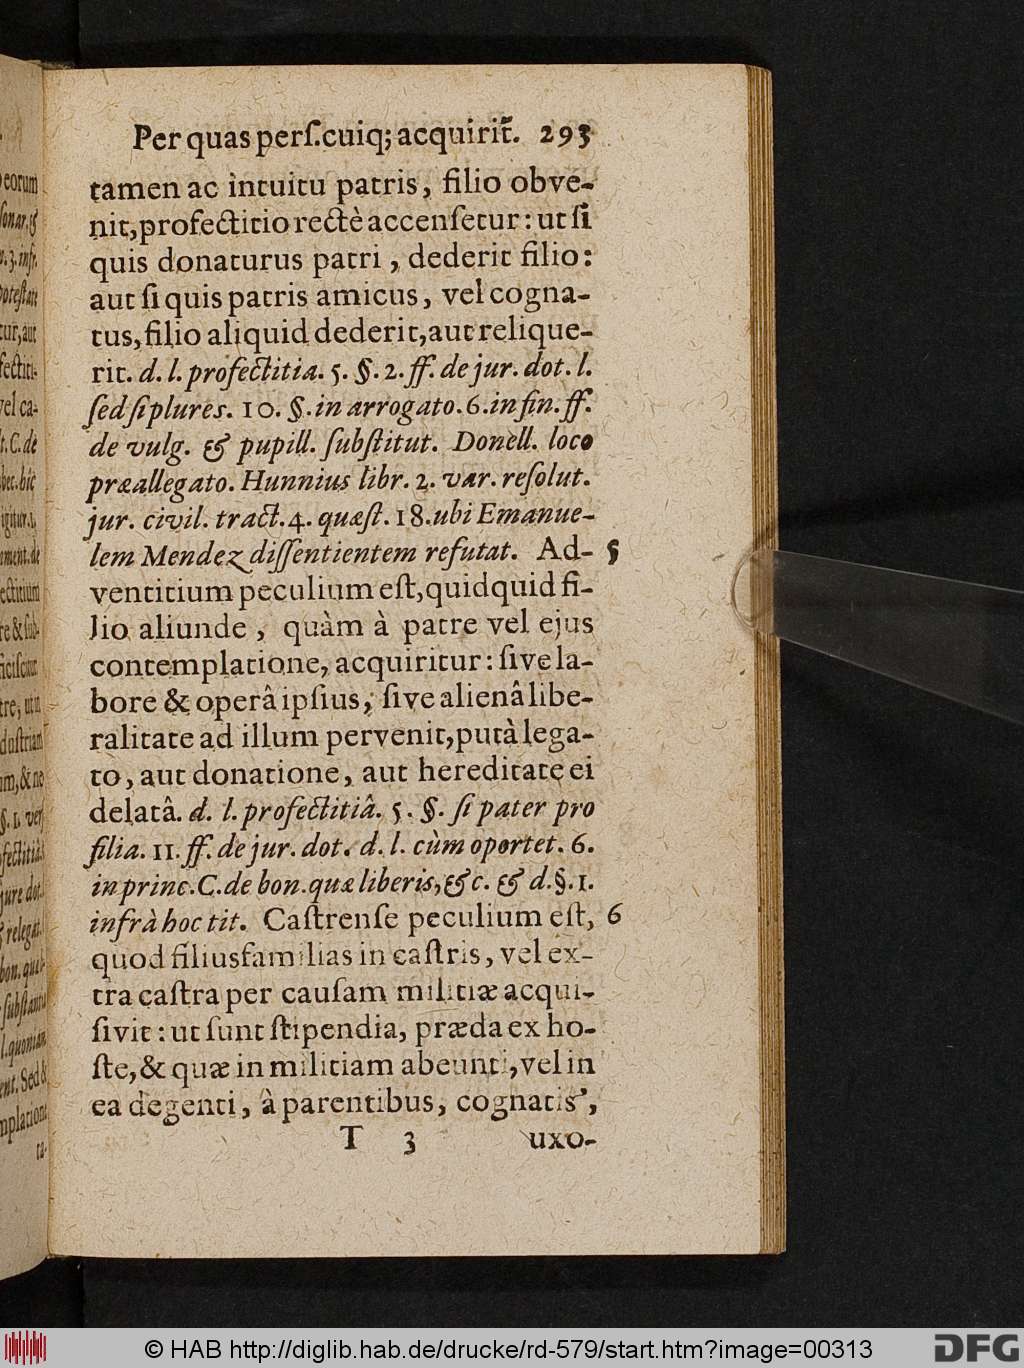 Per quas perſ. cuiq; acquirit̃. 293
tamen ac intuitu patris, filio obve-
nit, profectitio rectè accenſetur: ut ſi
quis donaturus patri, dederit filio:
aut ſi quis patris amicus, vel cogna-
tus, filio aliquid dederit, aut relique-
rit. d. l. profectitia. 5. §. 2. ff. de jur. dot. l.
ſed ſi plures. 10. §. in arrogato. 6. in fin. ff.
de vulg. & pupill. ſubſtitut. Donell. loco
præallegato. Hunnius libr. 2. var. reſolut.
jur. civil. tract. 4. quæſt. 18. ubi Emanue-
lem Mendez diſſentientem refutat. Ad- 5
ventitium peculium eſt, quidquid fi-
lio aliunde, quàm à patre vel ejus
contemplatione, acquiritur: ſive la-
bore & operâ ipſius, ſive alienâ libe-
ralitate ad illum pervenit, putà lega-
to, aut donatione, aut hereditate ei
delatâ. d. l. profectitiâ. 5. §. ſi pater pro
filia. 11. ff. de jur. dot. d. l. cùm oportet. 6.
in princ. C. de bon. quæ liberis, &c. & d. §. 1.
infrà hoc tit. Caſtrenſe peculium eſt, 6
quod filiusfamilias in caſtris, vel ex-
tra caſtra per cauſam militiæ acqui-
ſivit: ut ſunt ſtipendia, præda ex ho-
ſte, & quæ in militiam abeunti, vel in
ea degenti, à parentibus, cognatis,
T 3 uxo-
© HAB http://diglib.hab.de/drucke/rd-579/start.htm?image=00313
DFG